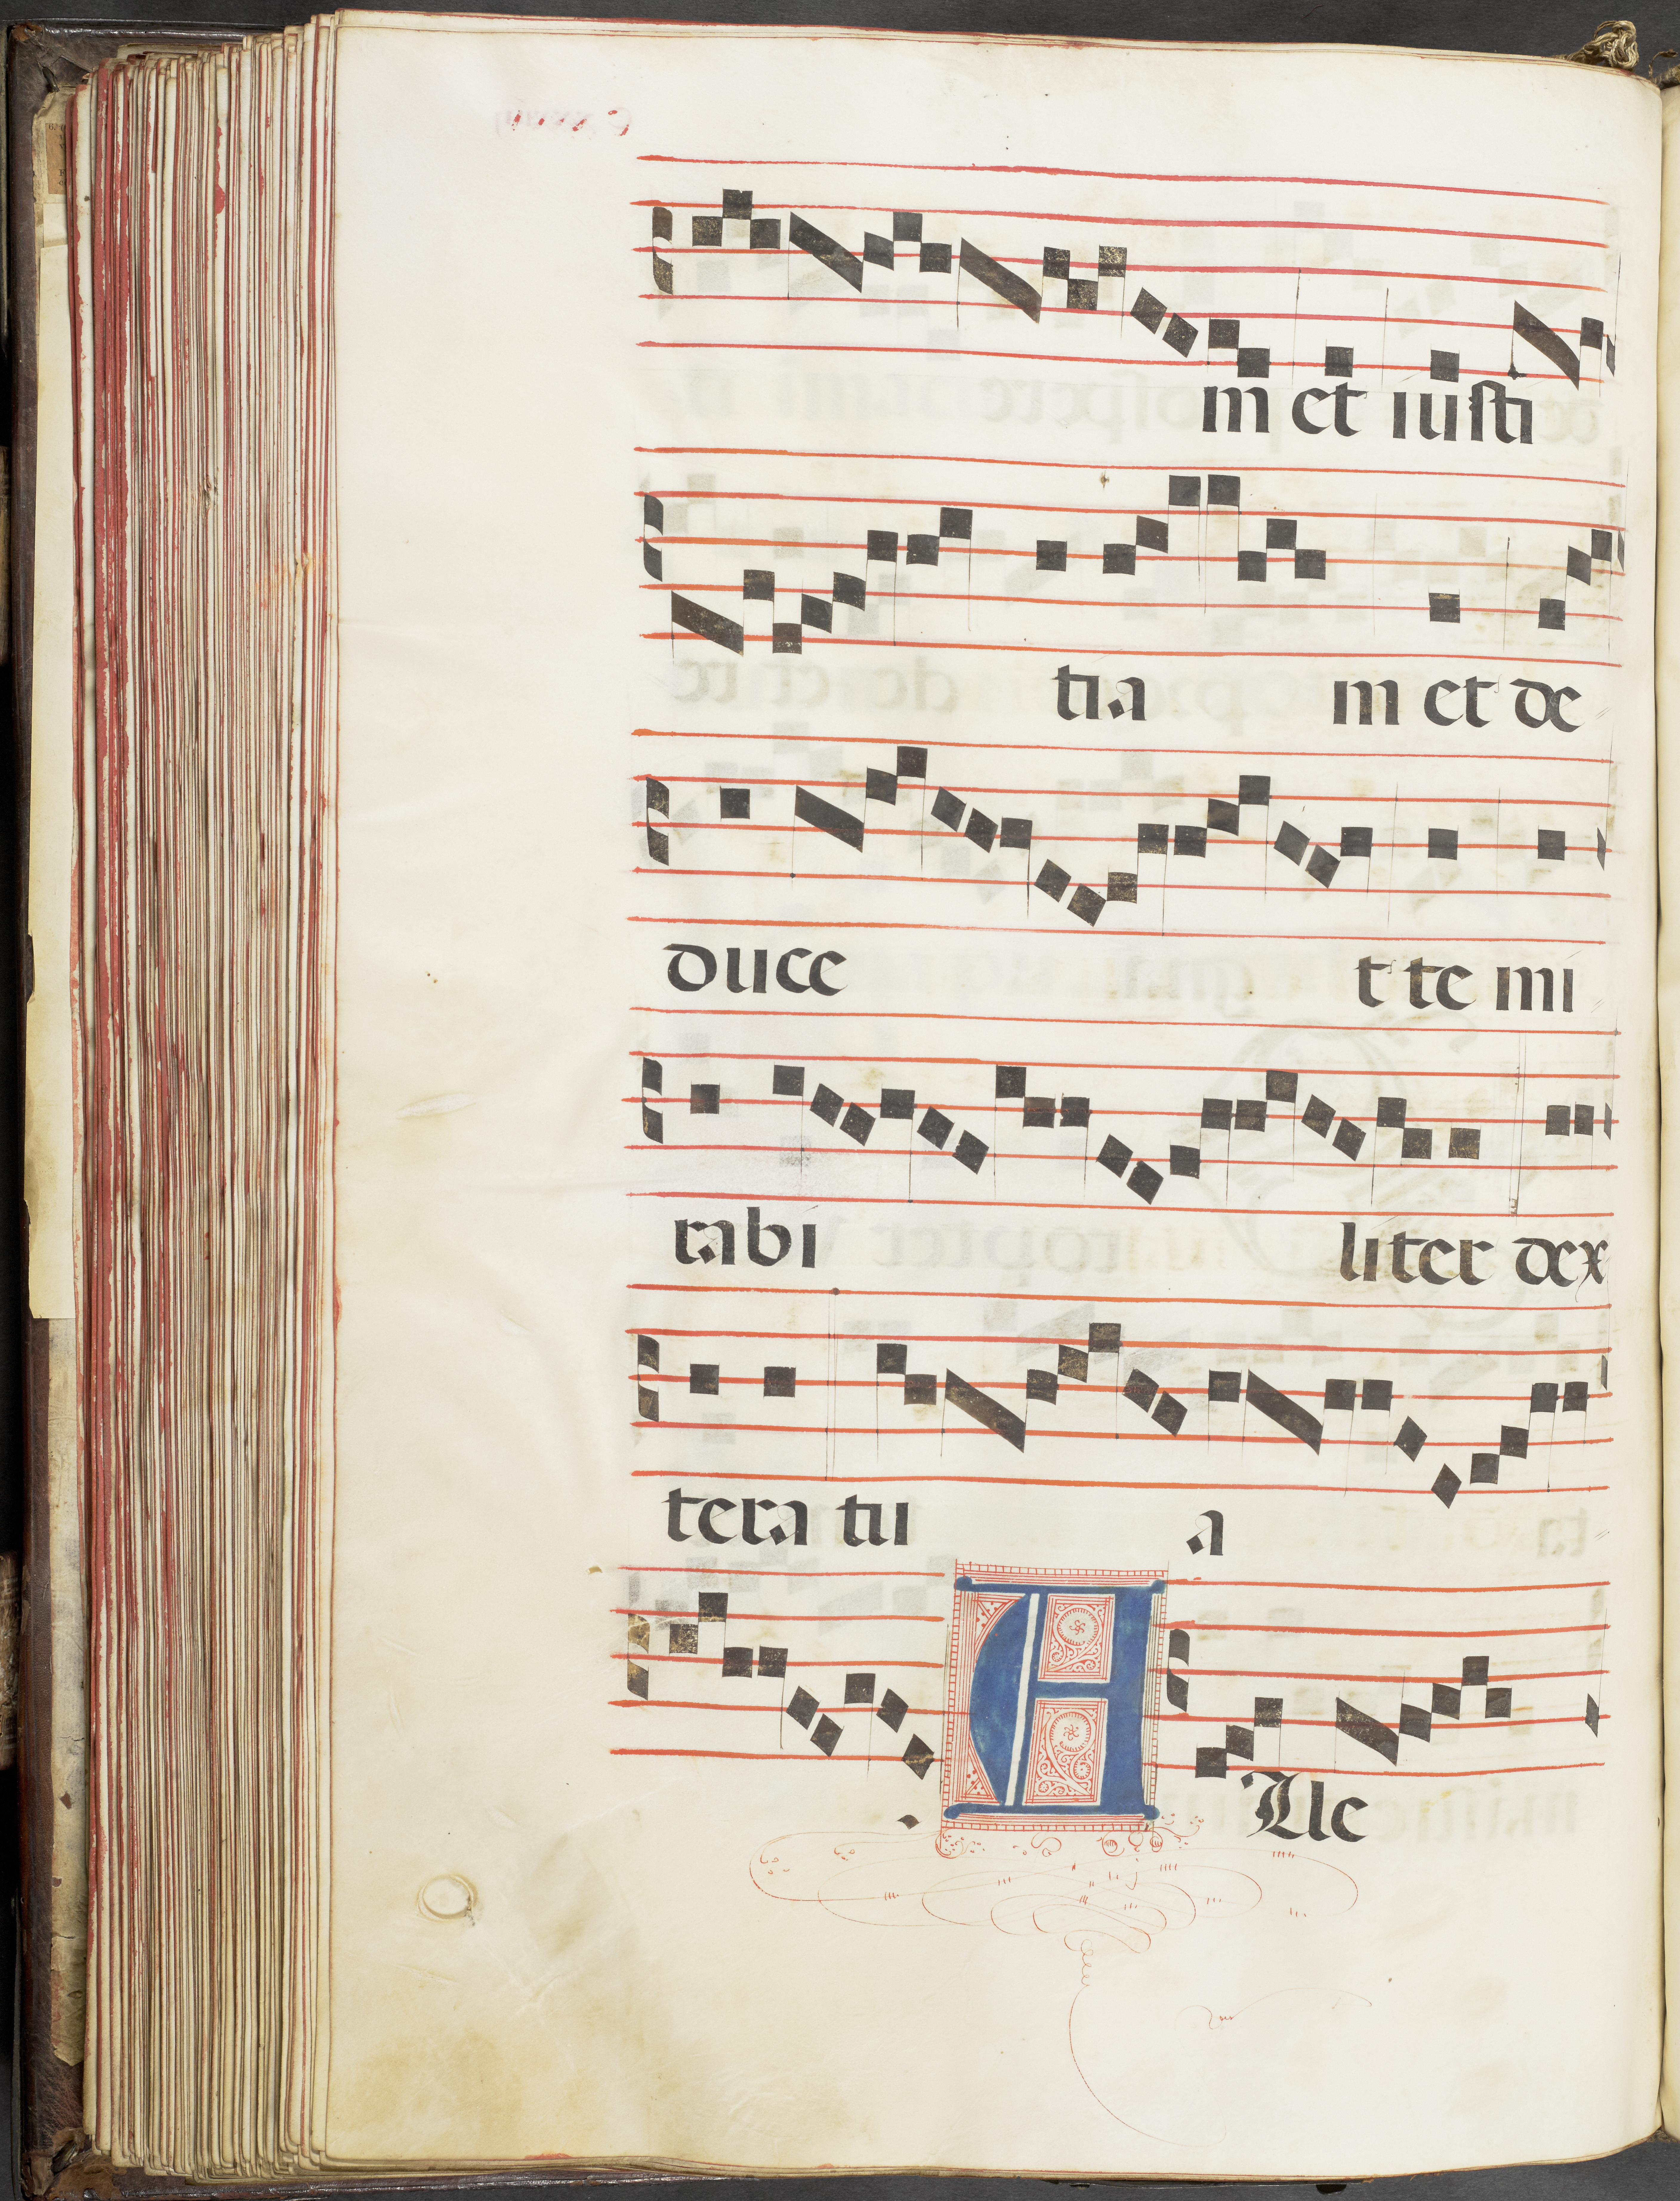 m et iusti
tia m et de
duce t te mi
rabi liter dex
tera tu a
A lle